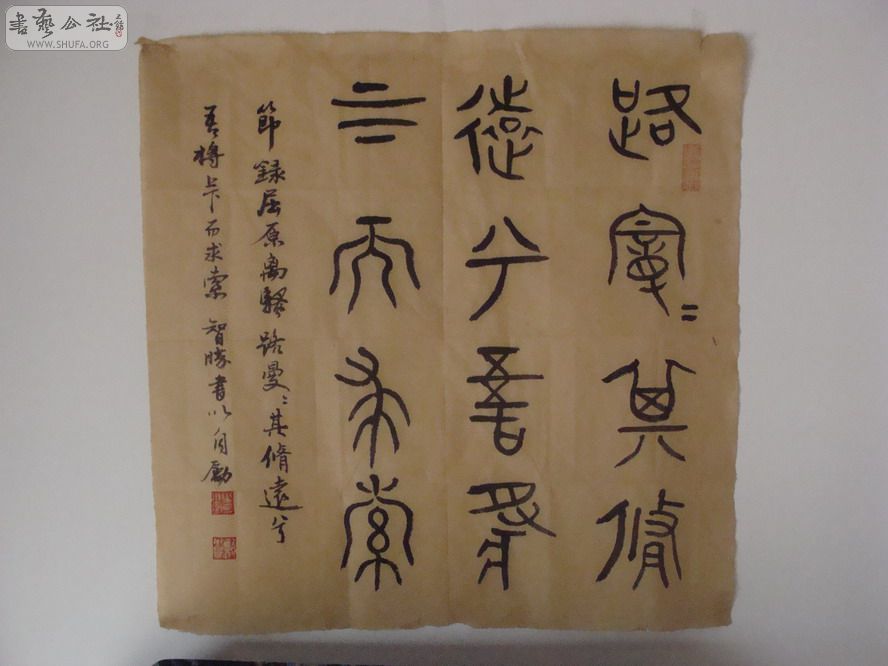 路曼〻其脩
遠兮吾將
上下而求索
節錄屈原离騷 路曼〻其脩遠兮
吾將上下而求索 智勝書以自勵
書藝公社
WWW.SHUFA.ORG